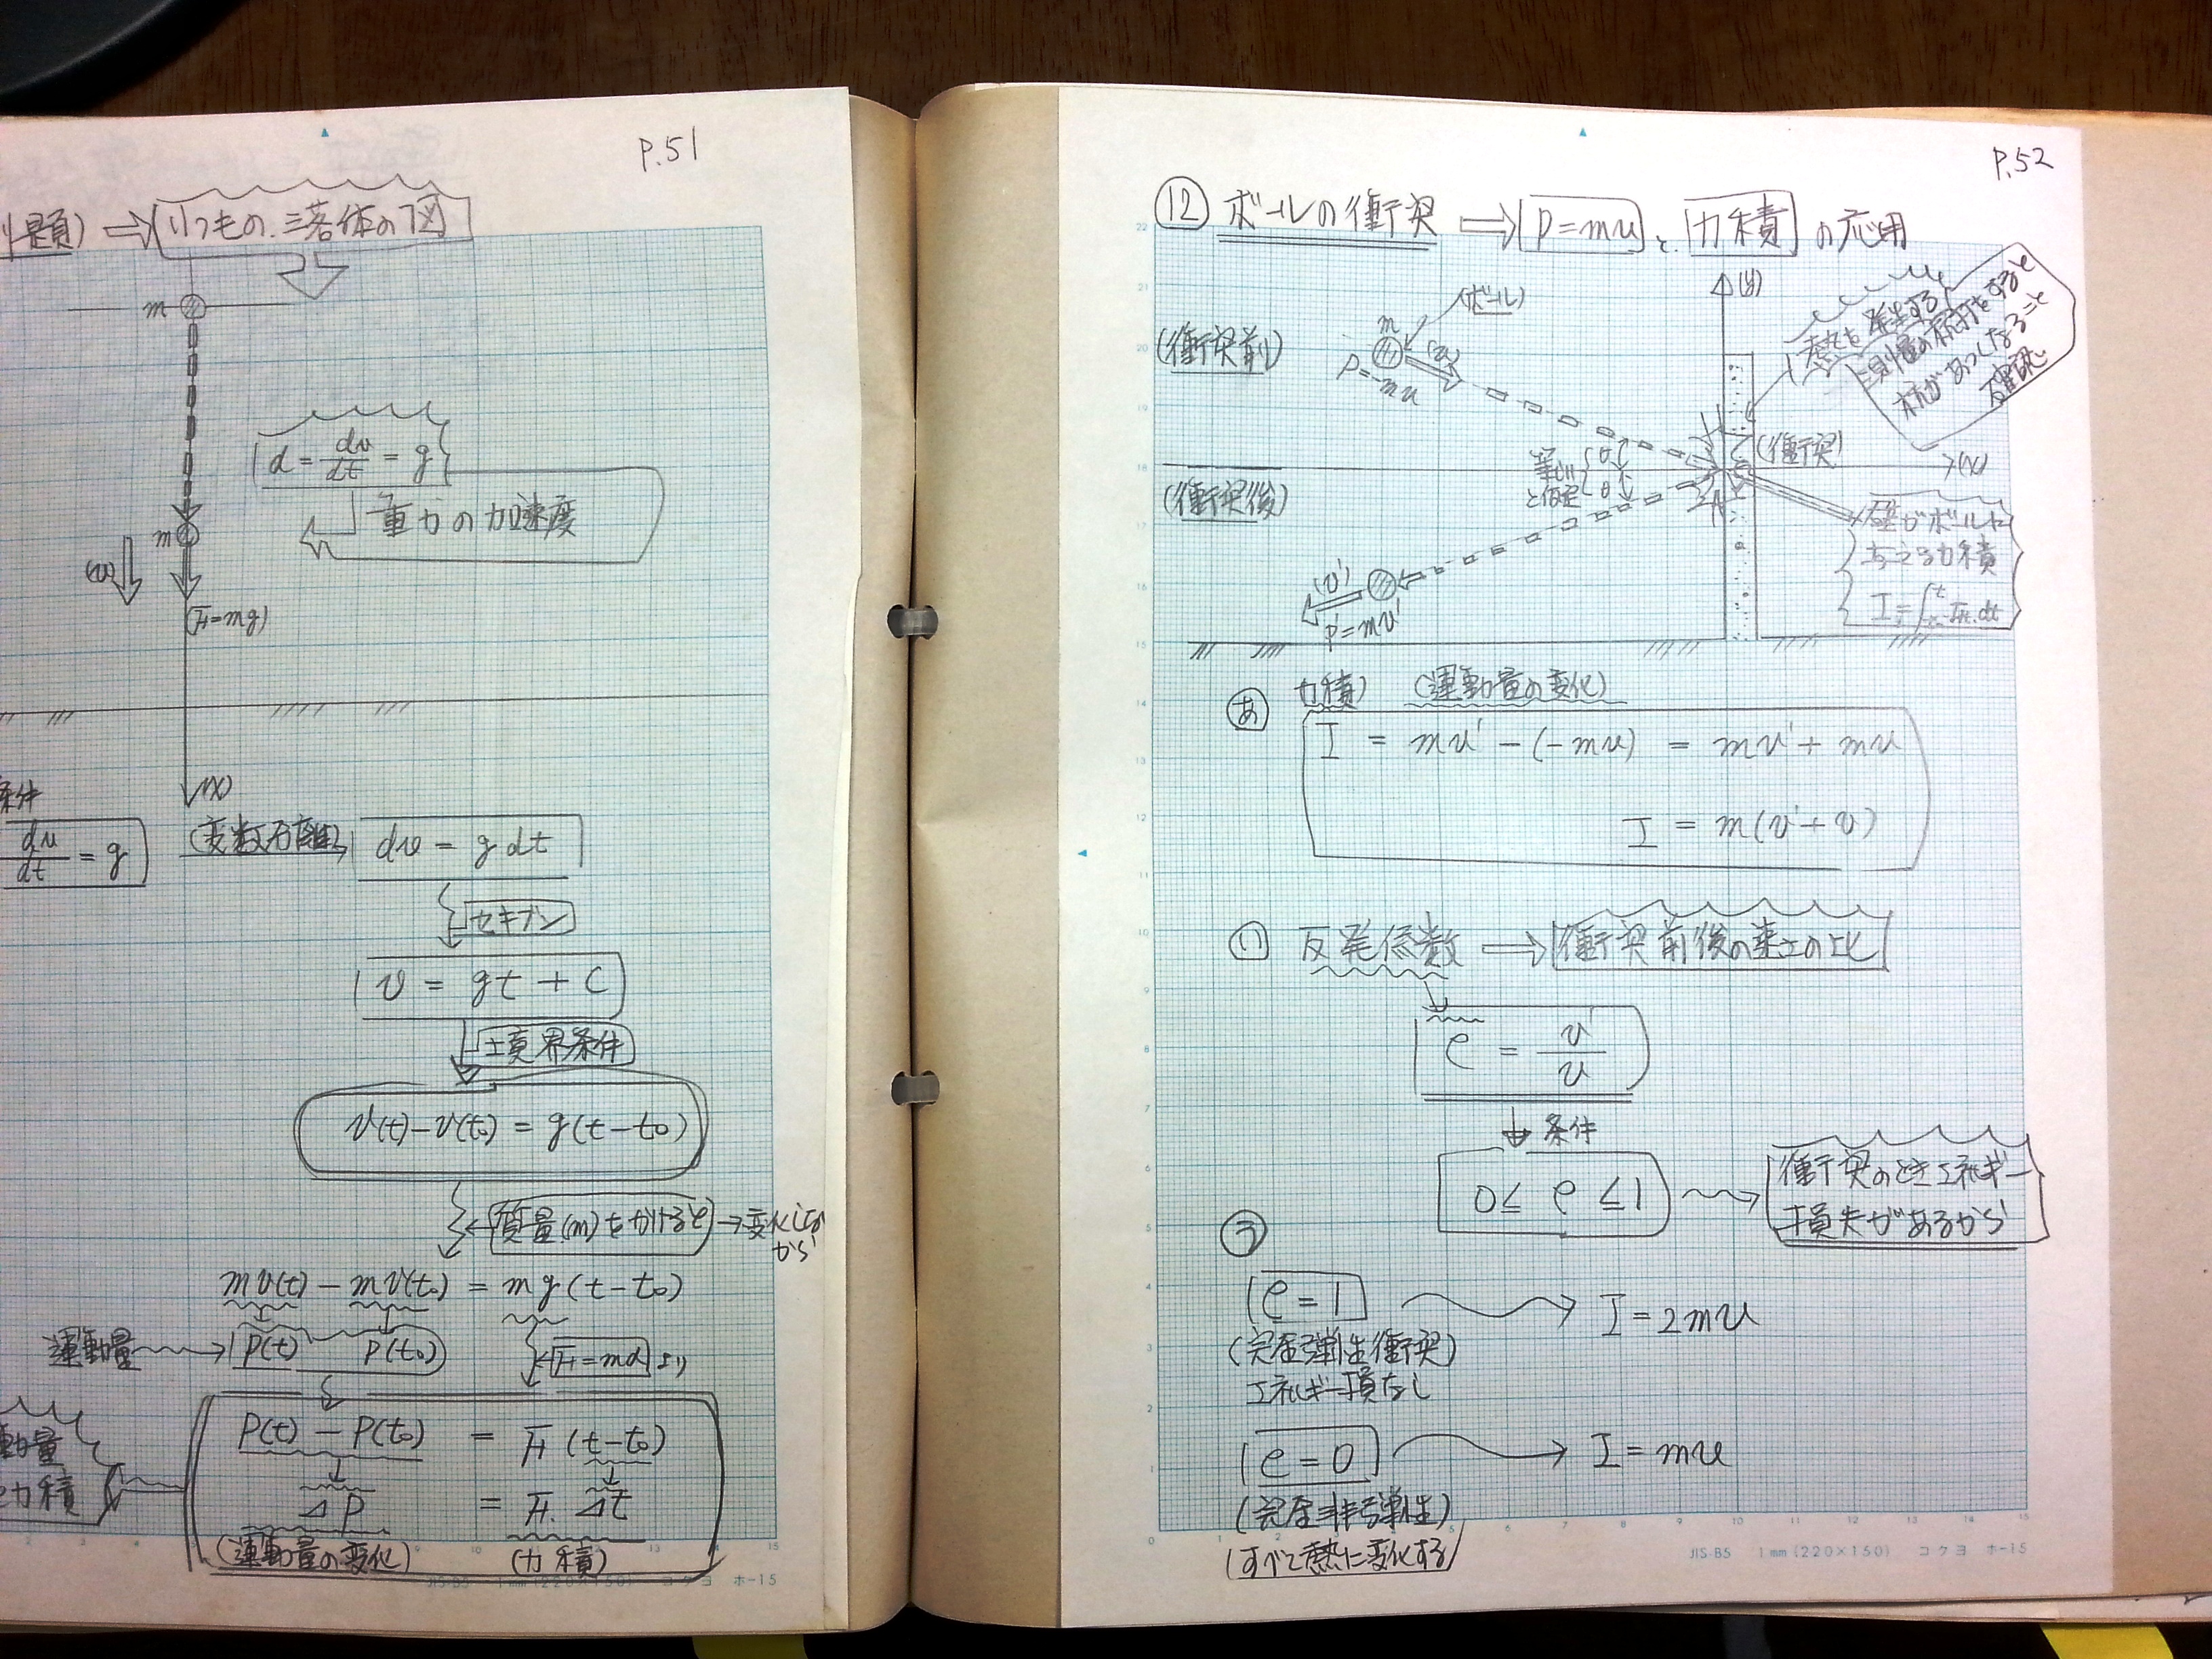 P.51
題) ⇒ いつもの.三落体の図
m
α = dv/dt = g
重力の加速度
m
(v)
(F=mg)
(x)
条件
dv/dt = g
(変数分離)
dv = g dt
セキブン
v = gt + C
境界条件
v(t)-v(t₀) = g(t-t₀)
質量(m)をかけると → 変化しない
から
mv(t) - mv(t₀) = mg(t-t₀)
運動量
P(t) P(t₀)
F=mα より
P(t) - P(t₀) = F(t-t₀)
ΔP = F. Δt
(運動量の変化) (力積)
動量
と力積
JIS-B5 1mm(220×150) コクヨ ホ-15
P.52
⑫ ボールの衝突 ⇒ P=mv と 力積 の応用
(y)
(ボール)
m
(v)
(衝突前)
P=-mv
熱も発生する
測量の杭打をすると
杭があつくなること
確認
(衝突)
(x)
等しい
と仮定
θ
θ
(衝突後)
壁がボールに
与える力積
(v')
P'=mv'
あ 力積) (運動量の変化)
I = mv' - (-mv) = mv' + mv
I = m(v'+v)
い 反発係数 ⇒ 衝突前後の速さの比
e = v'/v
条件
0 ≤ e ≤ 1
衝突のときエネルギー
損失があるから
う
e = 1 → I = 2mv
(完全弾性衝突)
エネルギー損なし
e = 0 → I = mv
(完全非弾性)
(すべて熱に変化する)
JIS-B5 1mm(220×150) コクヨ ホ-15